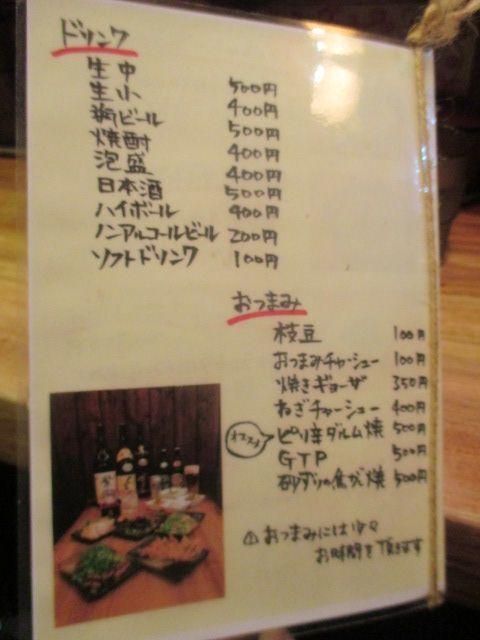 ドリンク
生中 500円
生小 400円
瓶ビール 500円
焼酎 400円
泡盛 400円
日本酒 500円
ハイボール 400円
ノンアルコールビール 200円
ソフトドリンク 100円
おつまみ
枝豆 100円
おつまみチャーシュー 100円
焼きギョーザ 350円
ねぎチャーシュー 400円
オススメ ピリ辛ダルム焼 500円
GTP 500円
砂ずりの焦がし焼 500円
⚠おつまみには少々
お時間を頂きます